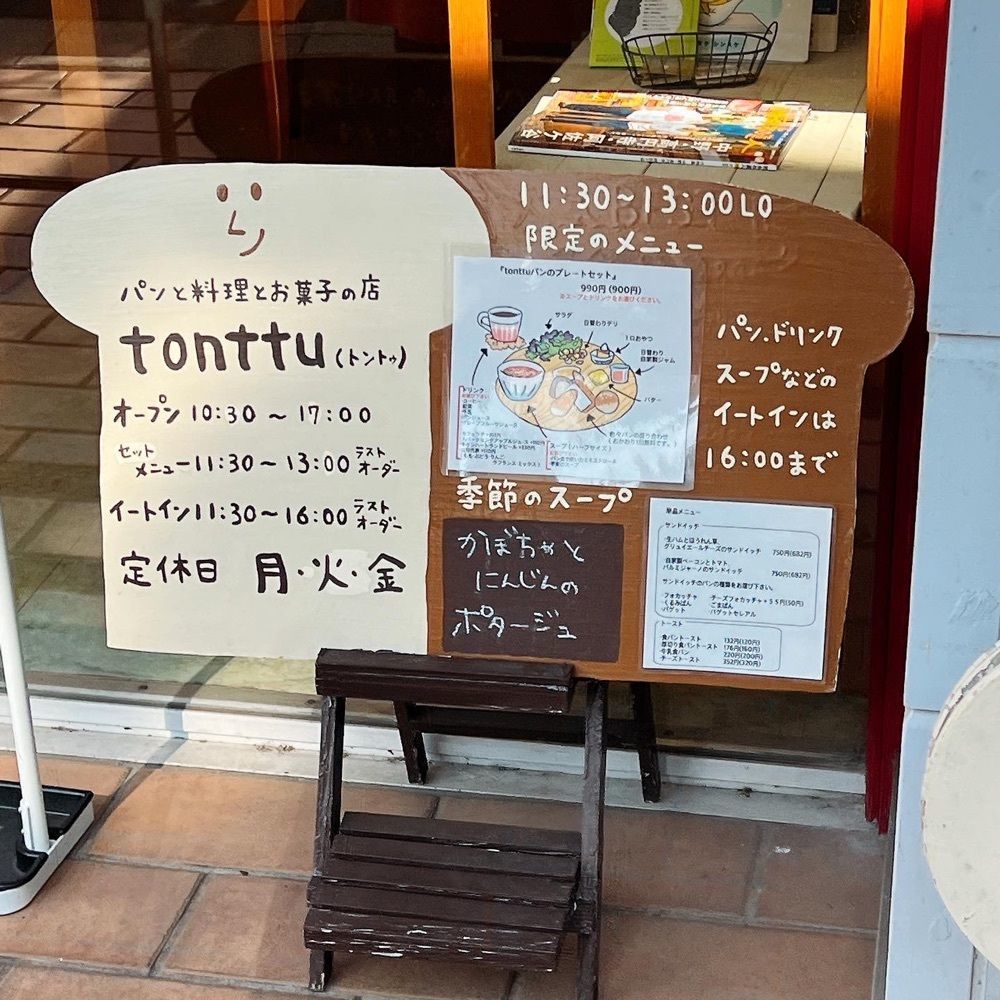 パンと料理とお菓子の店
tonttu(トントゥ)
オープン 10:30 〜 17:00
セットメニュー 11:30 〜 13:00 ラストオーダー
イートイン 11:30 〜 16:00 ラストオーダー
定休日 月・火・金
11:30〜13:00LO
限定のメニュー
『tonttuパンのプレートセット』
990円(900円)
※スープとドリンクをお選びください。
サラダ
日替わりデリ
1口おやつ
日替わり
自家製ジャム
バター
ドリンク
コーヒー
紅茶
色々パンの盛り合わせ
(おかわり1回無料です。)
スープ(ハーフサイズ)
ラフランス ミックス)
パン、ドリンク
スープなどの
イートインは
16:00まで
季節のスープ
かぼちゃと
にんじんの
ポタージュ
単品メニュー
サンドイッチ
生ハムとほうれん草、
グリュイエールチーズのサンドイッチ 750円(682円)
自家製ベーコンとトマト、
パルミジャーノのサンドイッチ 750円(682円)
サンドイッチのパンの種類をお選び下さい。
・フォカッチャ ・チーズフォカッチャ+55円(50円)
・くるみぱん ・ごまぱん
・バゲット ・バゲットセレアル
トースト
・食パントースト 132円(120円)
・厚切り食パントースト 176円(160円)
・牛乳食パン 220円(200円)
・チーズトースト 352円(320円)
中野・高円寺・阿佐ケ谷